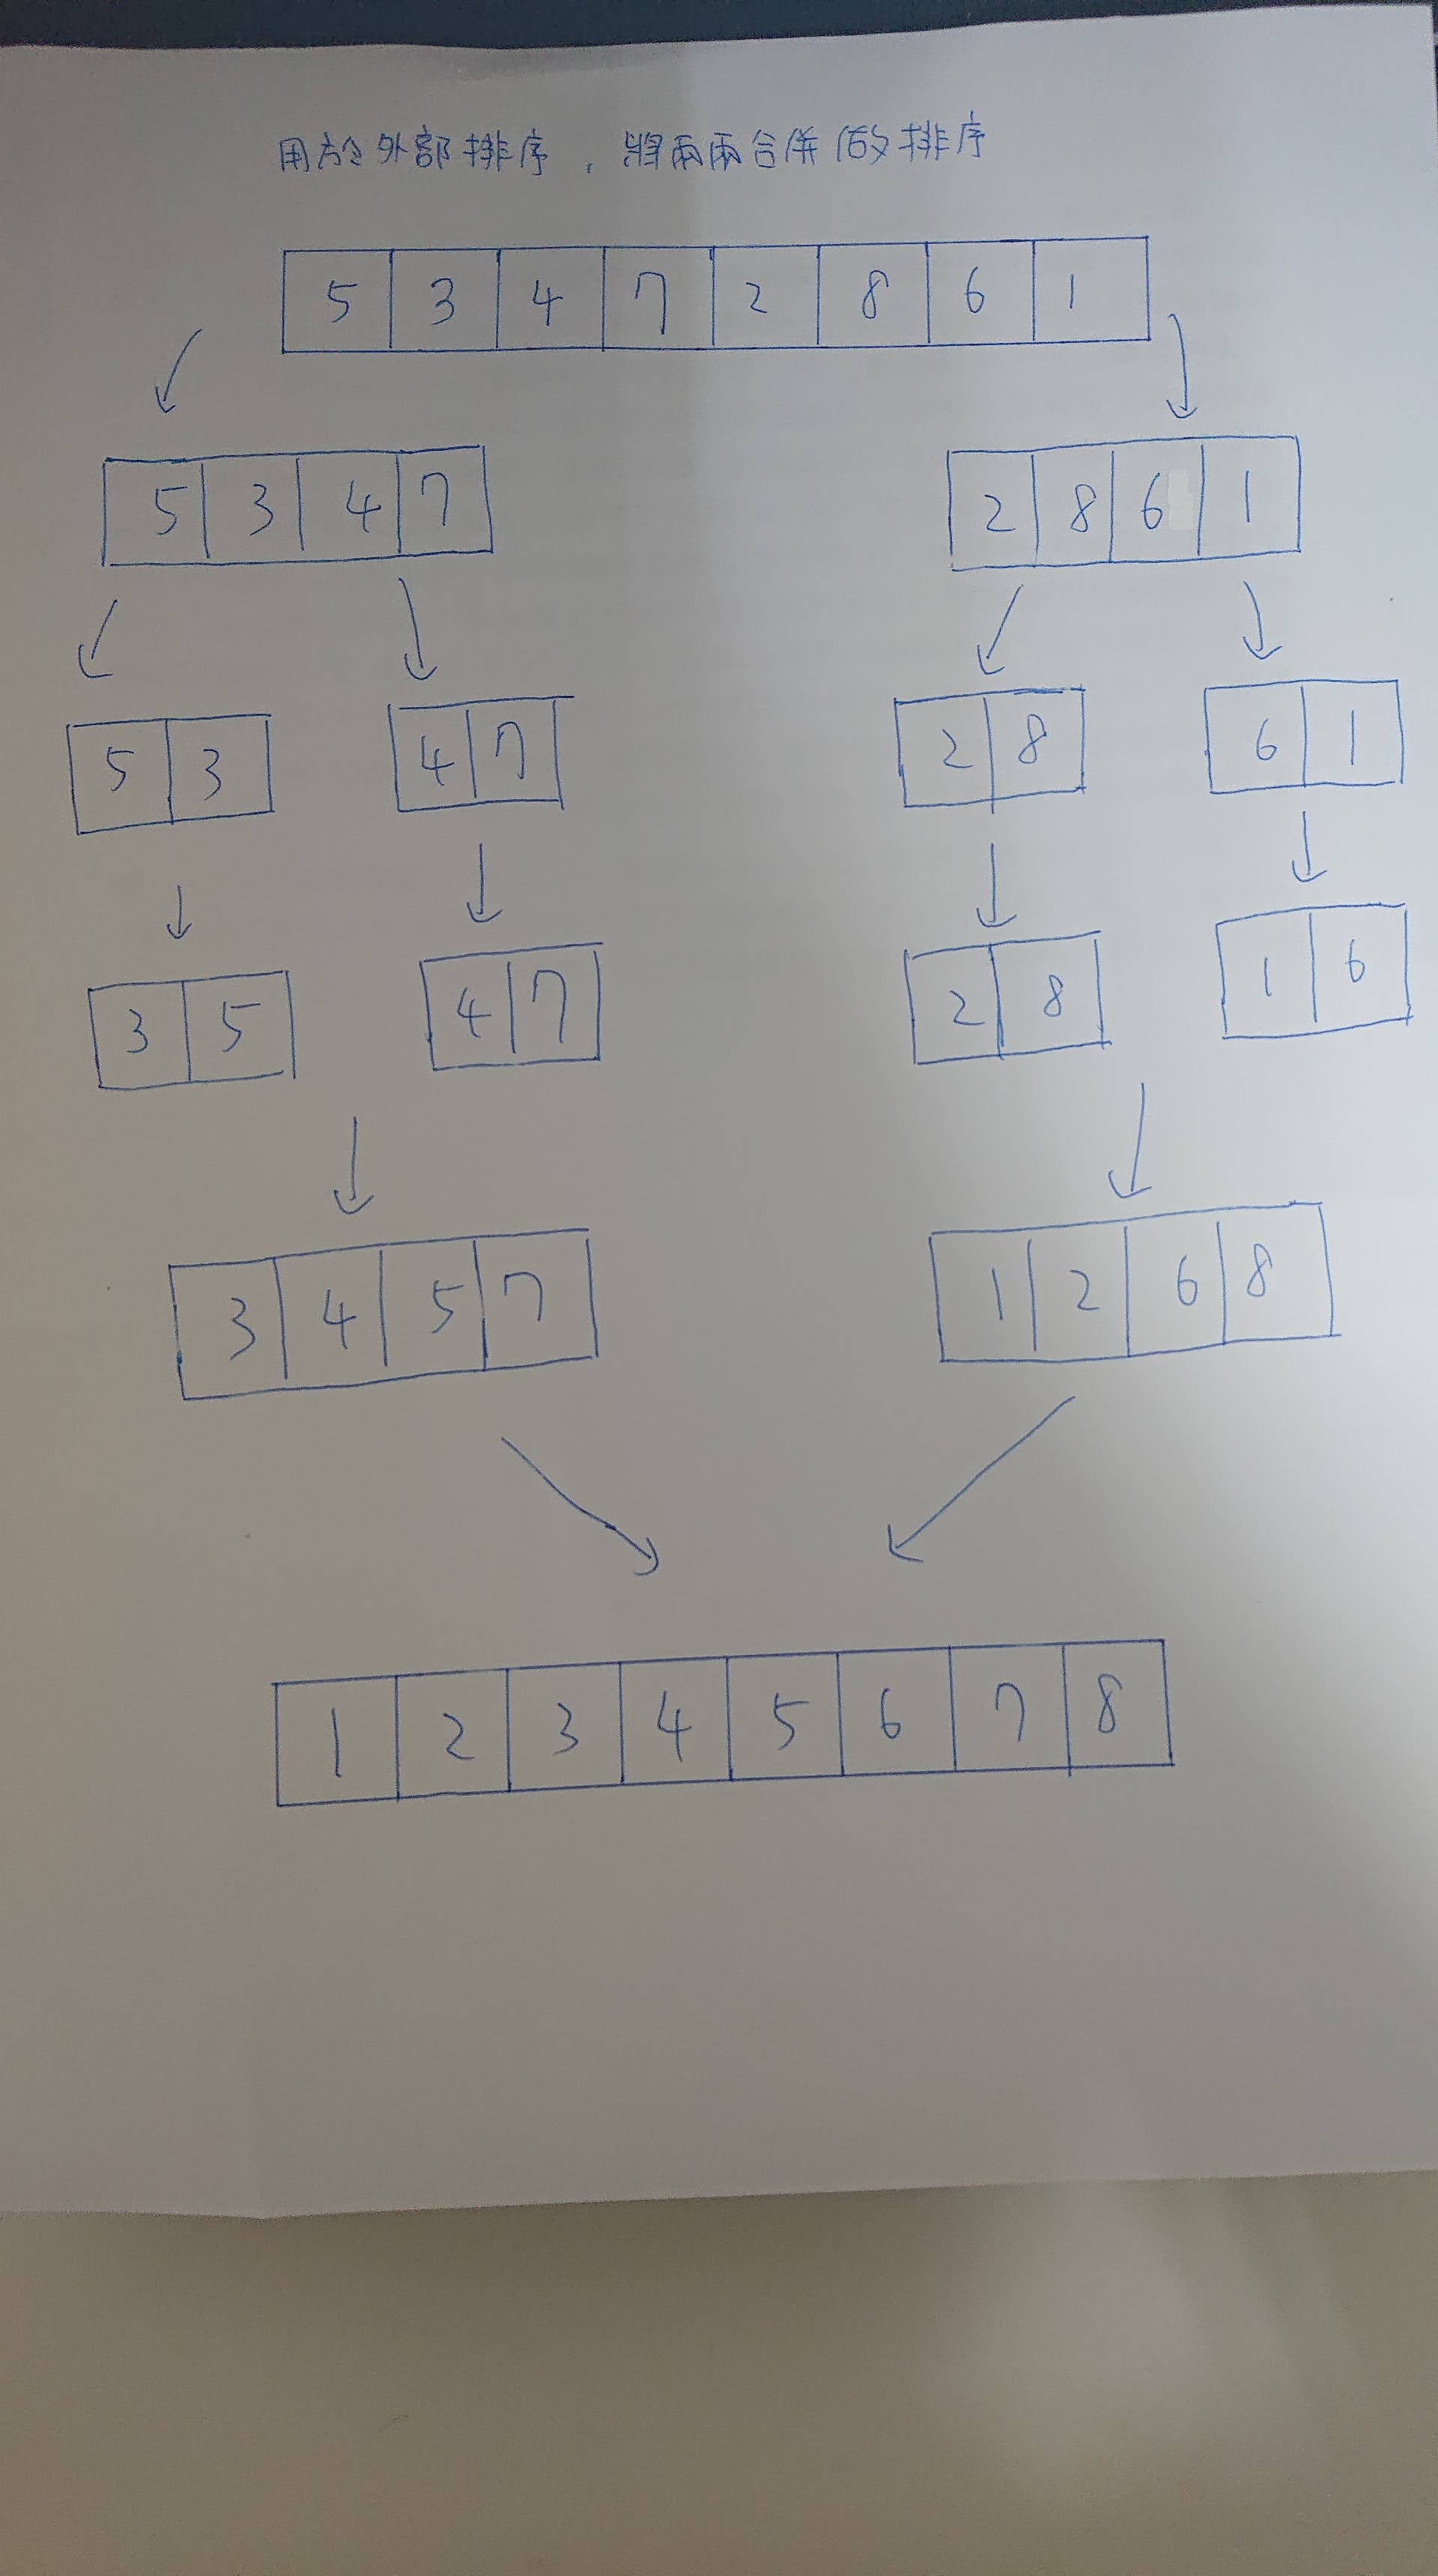 用於外部排序，將兩兩合併做排序
5 3 4 7 2 8 6 1
5 3 4 7 2 8 6 1
5 3 4 7 2 8 6 1
3 5 4 7 2 8 1 6
3 4 5 7 1 2 6 8
1 2 3 4 5 6 7 8